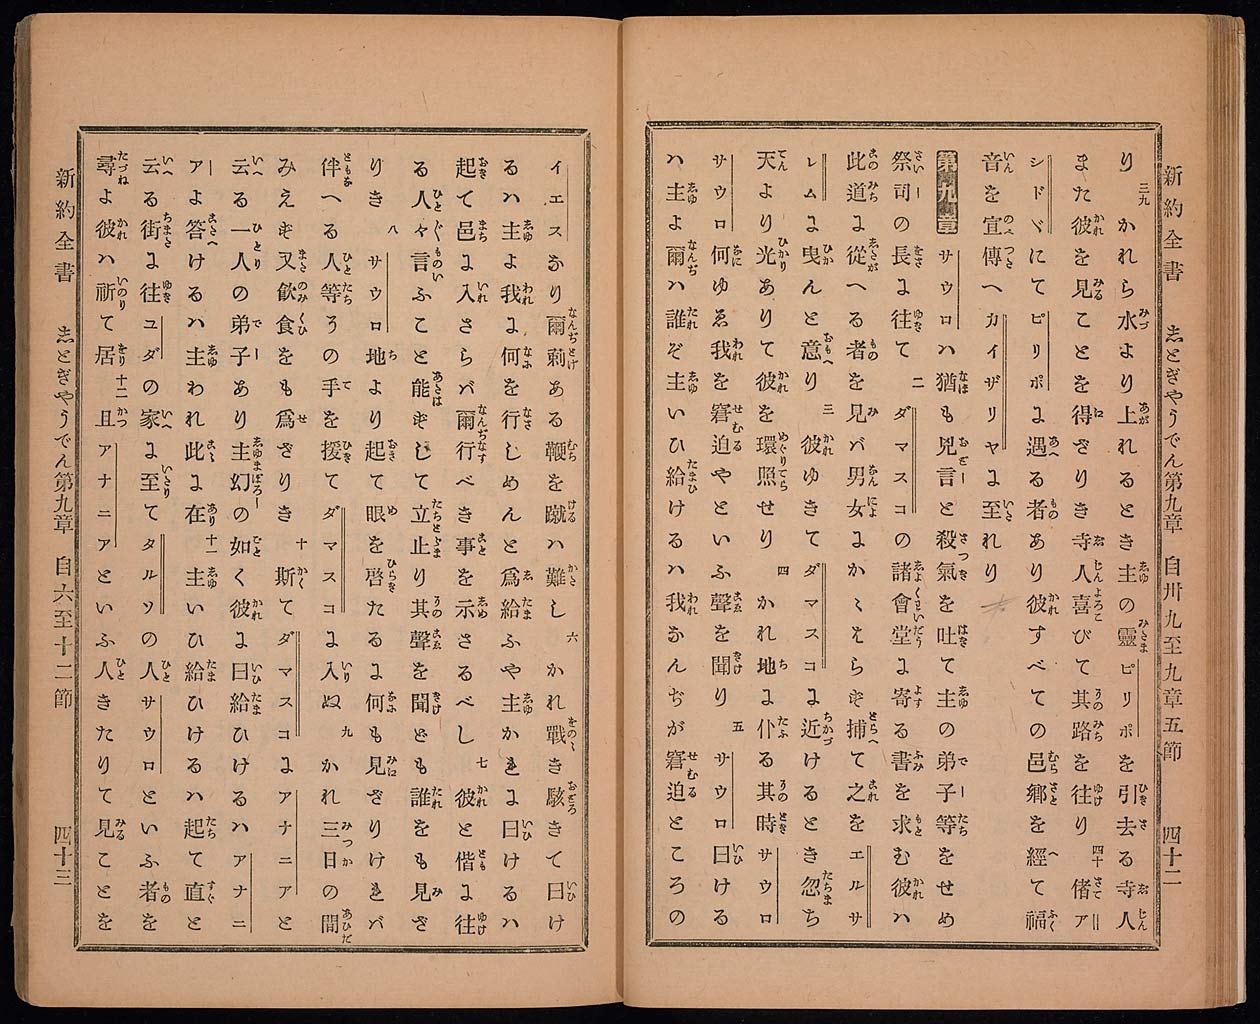 新約全書　志とぎやうでん第九章　自卅九至九章五節　四十二
り 三九 かれら水より上れるとき主の靈ピリポを引去る寺人
また彼を見ることを得ざりき寺人喜びて其路を往り 四十 偖ア
シドヾにてピリポに遇る者あり彼すべての邑郷を經て福
音を宣傳へカイザリヤに至れり
第九章 サウロハ猶も兇言と殺氣を吐て主の弟子等をせめ
祭司の長に往て 二 ダマスコの諸會堂に寄る書を求む彼ハ
此道に從へる者を見バ男女にかゝはらず捕て之をエルサ
レムに曳んと意り 三 彼ゆきてダマスコに近けるとき忽ち
天より光ありて彼を環照せり 四 かれ地に仆る其時サウロ
サウロ何ゆゑ我を窘迫やといふ聲を聞り 五 サウロ曰ける
ハ主よ爾ハ誰ぞ主いひ給けるハ我なんぢが窘迫ところの
イエスなり爾刺ある鞭を蹴ハ難し 六 かれ戰き駭きて曰け
るハ主よ我に何を行しめんと爲給ふや主かれに曰けるハ
起て邑に入さらバ爾行べき事を示さるべし 七 彼と偕に往
る人々言ふこと能ずして立止り其聲を聞ども誰をも見ざ
りき 八 サウロ地より起て眼を啓たるに何も見ざりけれバ
伴へる人等その手を援てダマスコに入ぬ 九 かれ三日の間
みえず又飮食をも爲ざりき 十 斯てダマスコにアナニアと
云る一人の弟子あり主幻の如く彼に曰給ひけるハアナニ
アよ答けるハ主われ此に在 十一 主いひ給ひけるハ起て直と
云る街に往ユダの家に至てタルソの人サウロといふ者を
尋よ彼ハ祈て居 十二 且アナニアといふ人きたりて見ことを
新約全書　志とぎやうでん第九章　自六至十二節　四十三